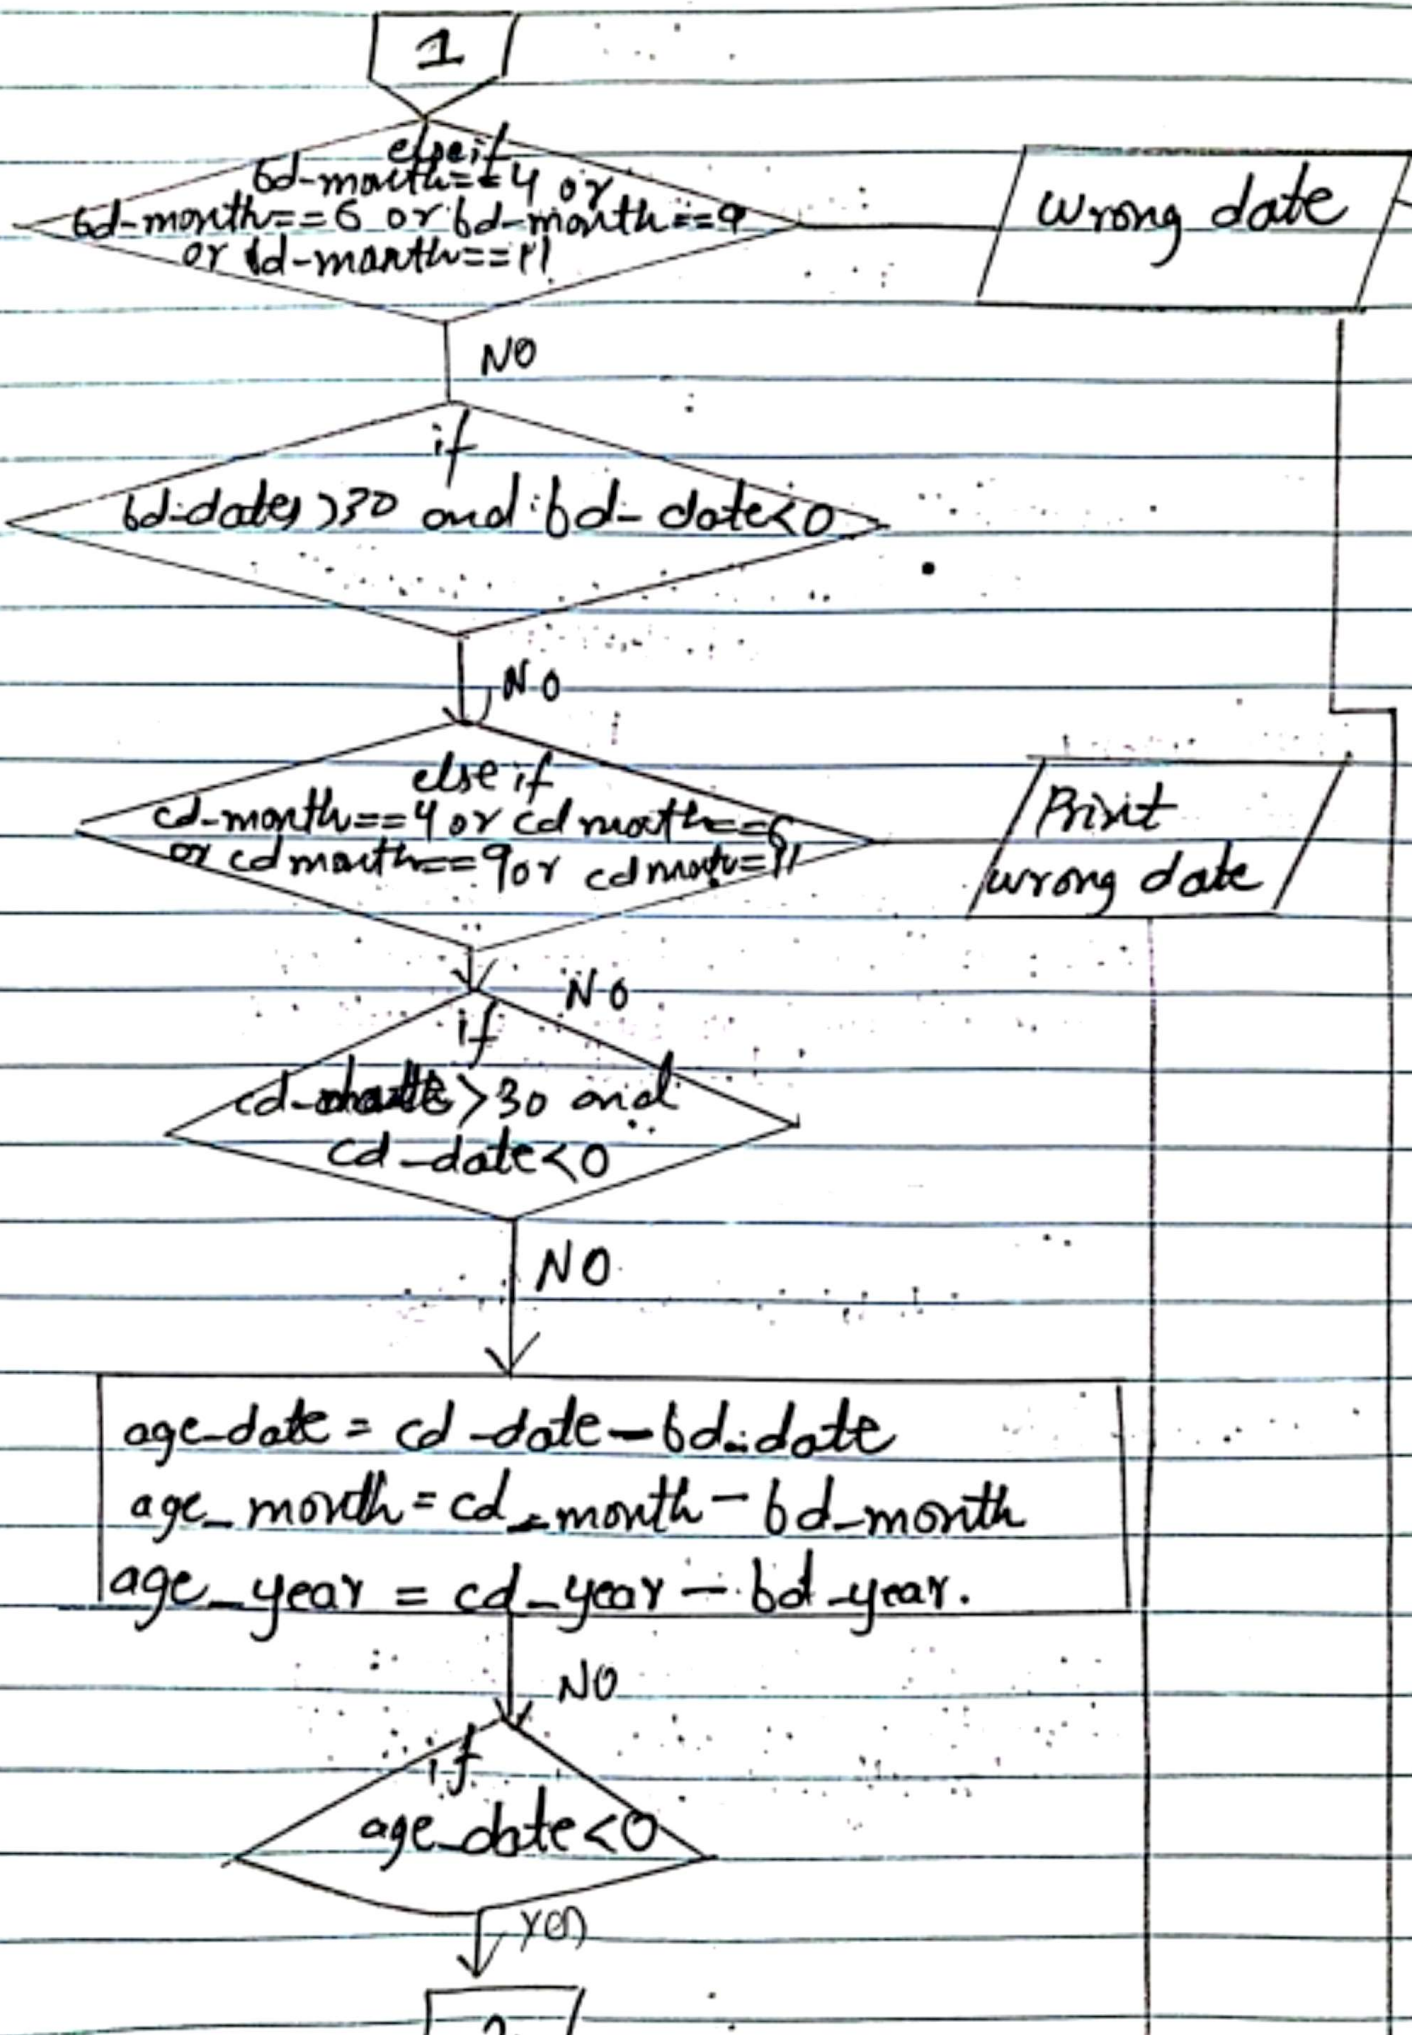 1
else if
bd-month==4 or
bd-month==6 or bd-month==9
or bd-month==11
wrong date
NO
if
bd-date>30 and bd-date<0
NO
else if
cd-month==4 or cd month==6
or cd month==9 or cd month=11
Print
wrong date
NO
if
>30 and
cd-date<0
NO
age-date = cd-date-bd-date
age_month = cd_month - bd_month
age_year = cd_year - bd_year.
NO
if
age_date<0
yes